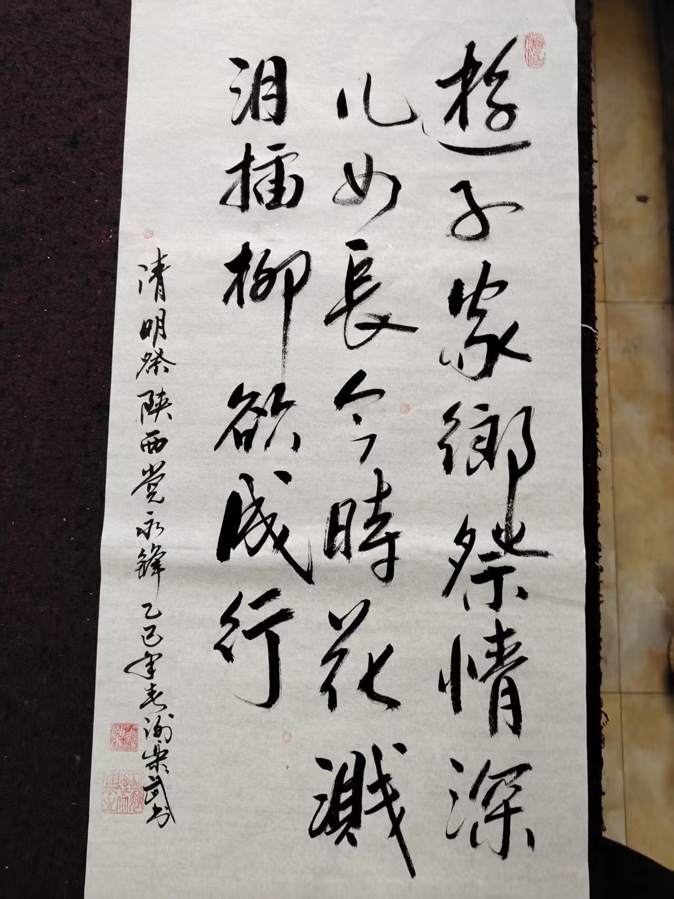 遊子家鄉祭情深
儿女長今時花濺
泪擂柳欲成行
清明祭陕西党永鋒乙巳年春謝榮武书